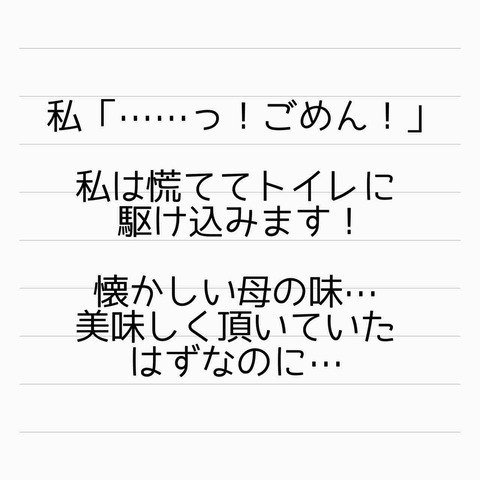 私「……っ！ごめん！」
私は慌ててトイレに
駆け込みます！
懐かしい母の味…
美味しく頂いていた
はずなのに…